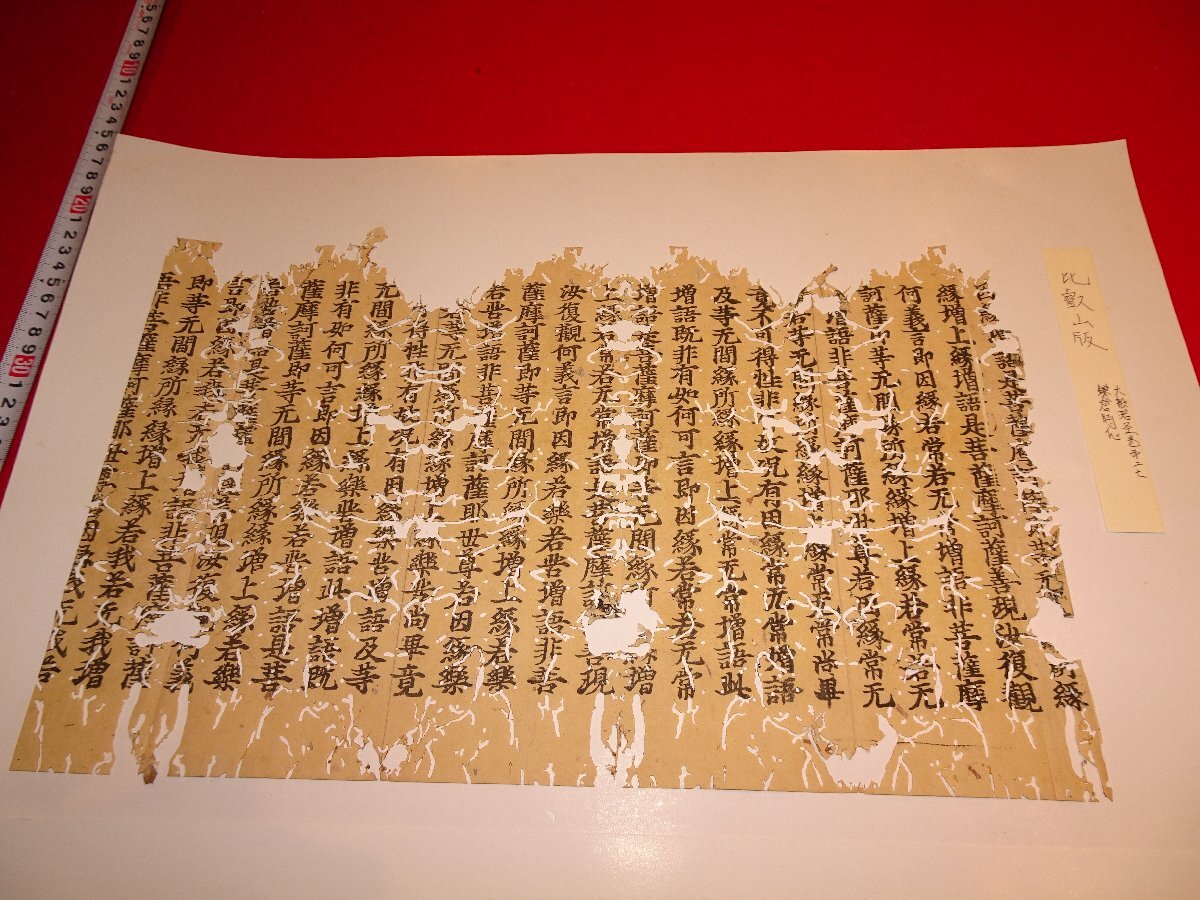 比叡山版
鎌倉時代
所緣
增語是菩薩摩訶薩
緣增上緣增語是菩薩摩訶薩善現汝復觀
何義言即因緣若常若无常增語非菩薩摩
訶薩即等无間緣所緣緣增上緣若常若无
增語非菩薩摩訶薩耶世尊若因緣常无
若等无間緣所緣緣增上緣常无常尚畢
竟不可得性非有故況有因緣常无常增語
及等无間緣所緣緣增上緣常无常增語此
增語既非有如何可言即因緣若常若无常
增語是菩薩摩訶薩即等无間緣所緣緣增
上緣若常若无常增語是菩薩摩訶薩善現
汝復觀何義言即因緣若樂若苦增語非菩
薩摩訶薩即等无間緣所緣緣增上緣若樂
若苦增語非菩薩摩訶薩耶世尊若因緣樂
苦若等无間緣所緣緣增上緣樂苦尚畢竟
不可得性非有故況有因緣樂苦增語及等
无間緣所緣緣增上緣樂苦增語此增語既
非有如何可言即因緣若樂若苦增語是菩
薩摩訶薩即等无間緣所緣緣增上緣若樂
若苦增語是菩薩摩訶薩善現汝復觀何義
言即因緣若我若无我增語非菩薩摩訶薩
即等无間緣所緣緣增上緣若我若无我增
語非菩薩摩訶薩耶世尊若因緣我无我若